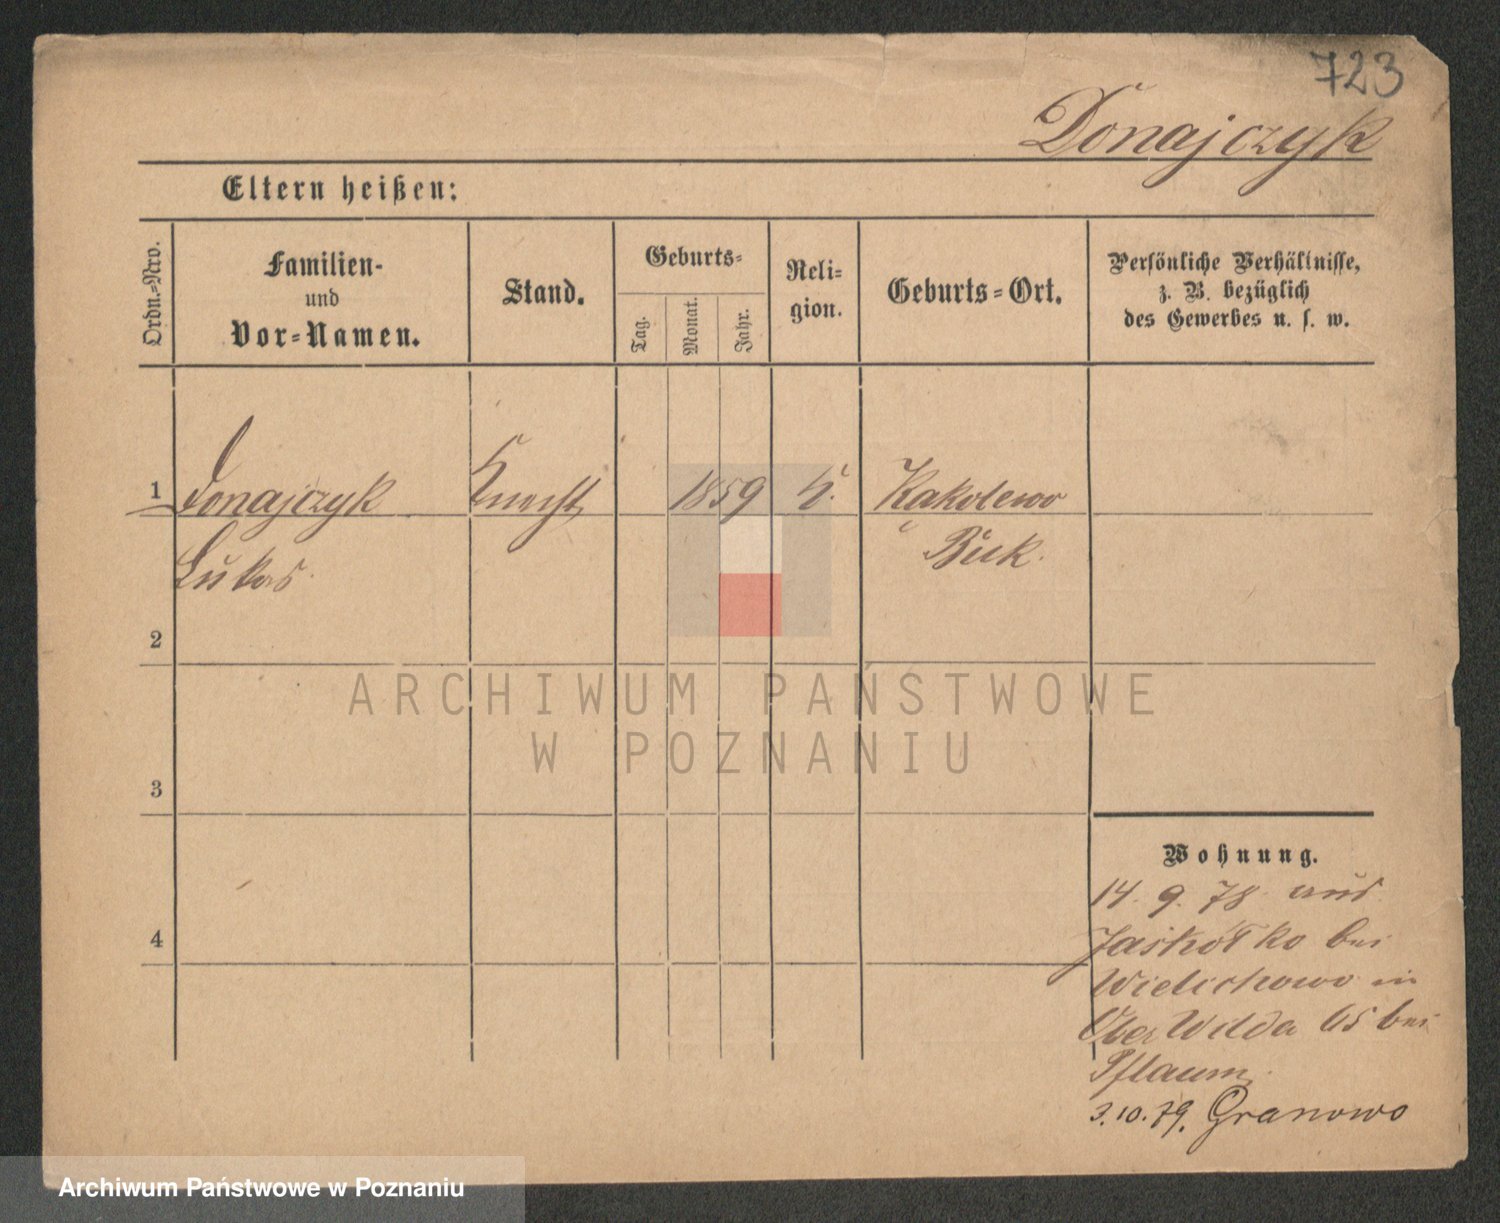 723
Donajczyk
Eltern heißen:
Ordn.-Nro.
Familien-
und
Vor-Namen.
Stand.
Geburts-
Tag.
Monat.
Jahr.
Reli-
gion.
Geburts-Ort.
Persönliche Verhältnisse,
z. B. bezüglich
des Gewerbes u. s. w.
1 Donajczyk Knecht 1859 k. Kakolewo
Lukas Buk.
2
ARCHIWUM PAŃSTWOWE
W POZNANIU
3
Wohnung.
14. 9. 78. aus
Jaskółko bei
Wielichowo in
Ober Wilda 65 bei
Pflaum
4
3.10.79. Granowo
Archiwum Państwowe w Poznaniu